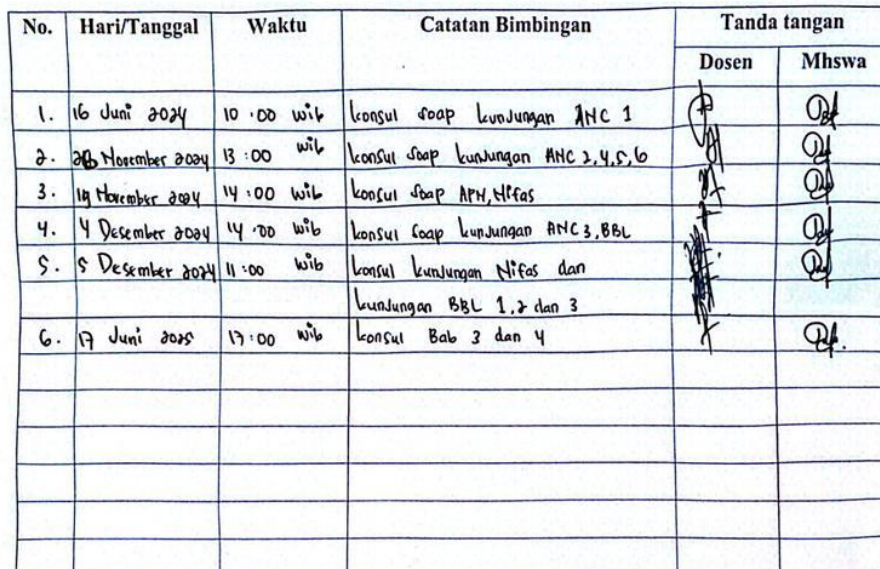 No. Hari/Tanggal Waktu Catatan Bimbingan Tanda tangan
Dosen Mhswa
1. 16 Juni 2024 10.00 wib konsul soap kunjungan ANC 1
2. November 2024 13:00 wib konsul soap kunjungan ANC 2,4,5,6
3. 19 November 2024 14:00 wib konsul soap APN, Nifas
4. 4 Desember 2024 14.00 wib konsul soap kunjungan ANC 3, BBL
5. 5 Desember 2024 11:00 wib konsul kunjungan Nifas dan
kunjungan BBL 1,2 dan 3
6. 17 Juni 2025 13:00 wib konsul Bab 3 dan 4